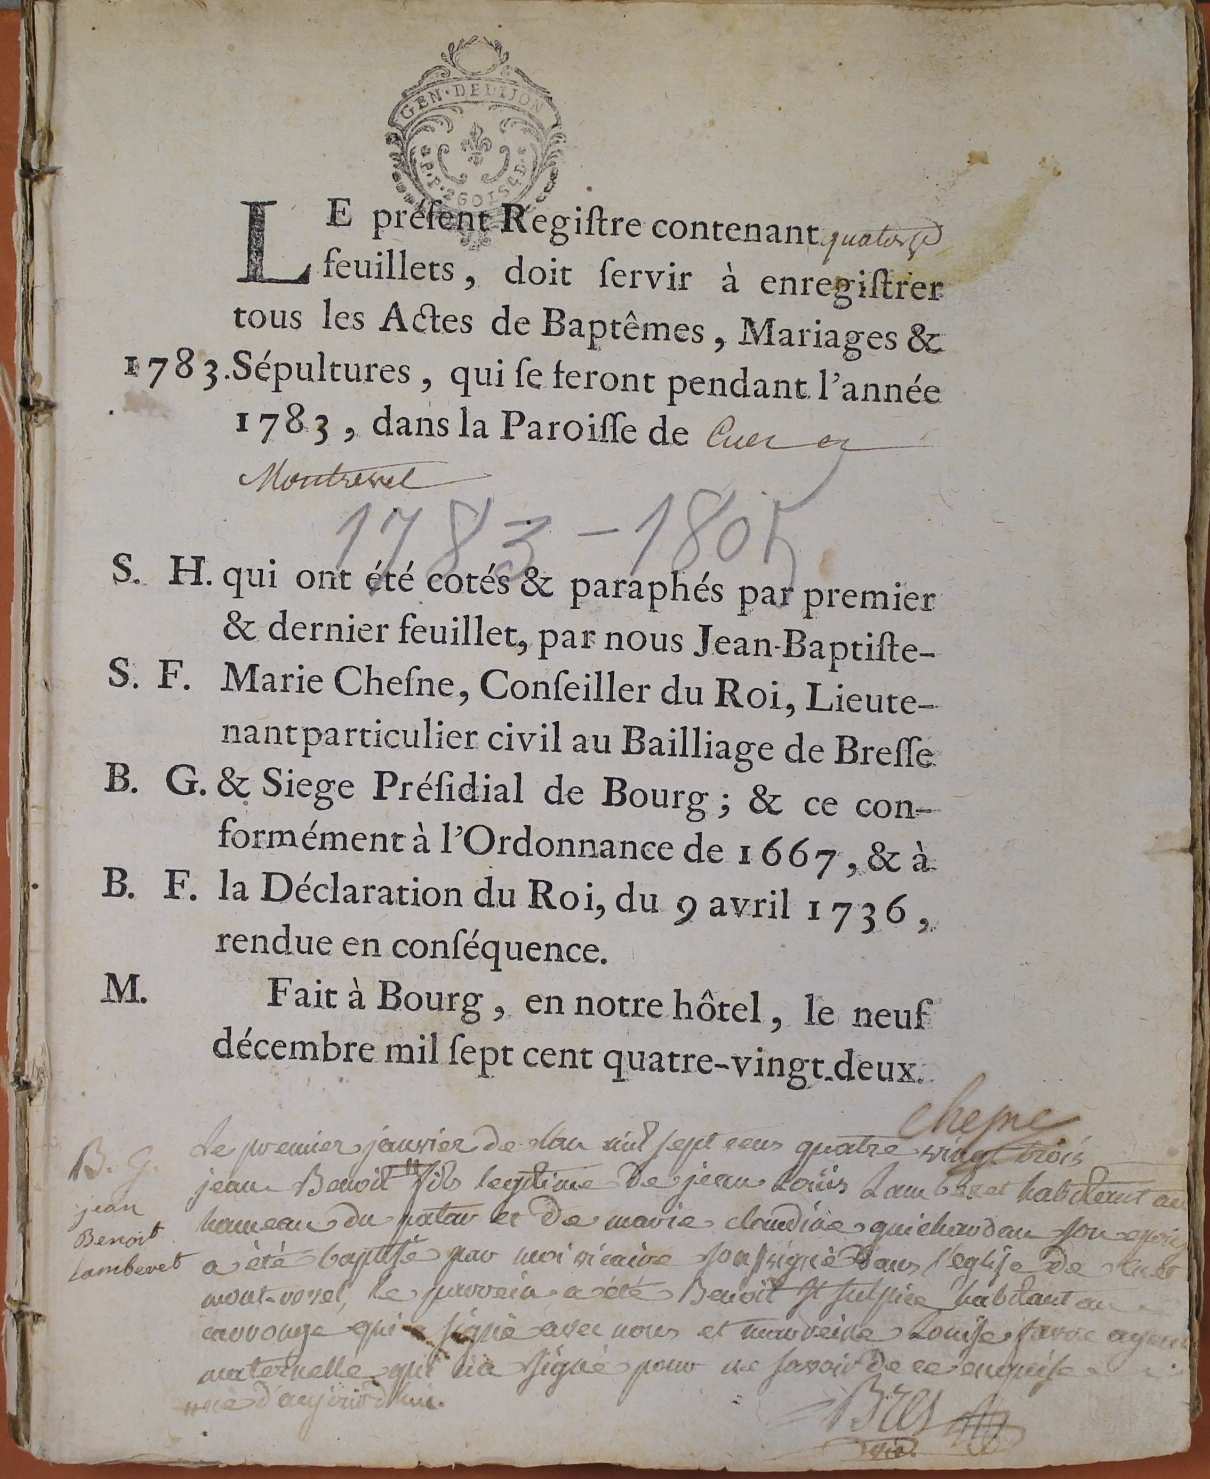 GEN · DE DIJON
LE préſent Regiſtre contenant quatorze
feuillets, doit ſervir à enregiſtrer
tous les Actes de Baptêmes, Mariages &
1783. Sépultures, qui ſe feront pendant l'année
1783, dans la Paroiſſe de Cuet
Montrevel
1783-1805
S. H. qui ont été cotés & paraphés par premier
& dernier feuillet, par nous Jean-Baptiſte-
S. F. Marie Cheſne, Conſeiller du Roi, Lieute-
nant particulier civil au Bailliage de Breſſe
B. G. & Siege Préſidial de Bourg; & ce con-
formément à l'Ordonnance de 1667, & à
B. F. la Déclaration du Roi, du 9 avril 1736,
rendue en conſéquence.
M. Fait à Bourg, en notre hôtel, le neuf
décembre mil ſept cent quatre-vingt-deux.
Chesne
B. G.
jean
Benoit
Lamberet
Le premier janvier de lan mil sept cens quatre vingt trois
jean Benoit fils legitime de jean Loüis Lamberet habitant au
hameau du et de marie claudine guichardan son
a été baptisé par moi vicaire soussigné dans l'eglise de
mont-revel, le parrein a été Benoit St sulpice habitant au
qui a signé avec nous et marreine Louise
maternelle qui n'a signé pour ne savoir de ce enquise
né d'aujourd'hui.
Bres
vic.